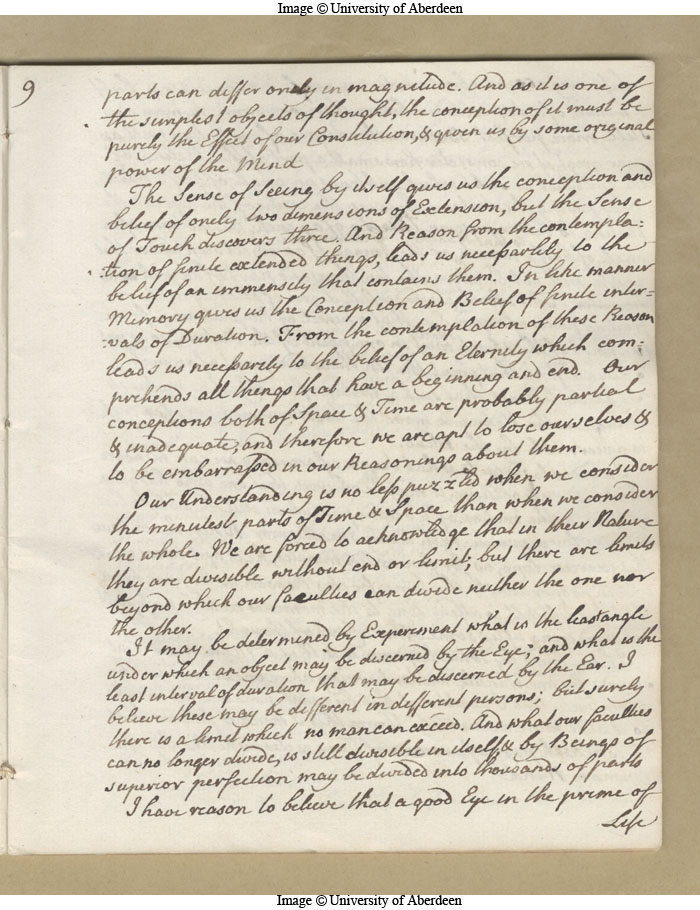 Image © University of Aberdeen
9
parts can differ onely in magnitude. And as it is one of
the simplest objects of thought, the conception of it must be
purely the Effect of our Constitution, & given us by some original
power of the Mind
The Sense of Seeing by itself gives us the conception and
belief of onely two dimensions of Extension, but the Sense
of Touch discovers three. And Reason from the contempla:
:tion of finite extended things, leads us necessarily to the
belief of an immensity that contains them. In like manner
Memory gives us the Conception and Belief of finite inter=
:vals of Duration. From the contemplation of these Reason
leads us necessarily to the belief of an Eternity which com=
prehends all things that have a beginning and end. Our
conceptions both of Space & Time are probably partial
& inadequate, and therefore we are apt to lose ourselves &
to be embarrassed in our Reasonings about them.
Our Understanding is no less puzzled when we consider
the minutest parts of Time & Space than when we consider
the whole. We are forced to acknowledge that in their Nature
they are divisible without end or limit; but there are limits
beyond which our faculties can divide neither the one nor
the other.
It may be determined by Experiment what is the least angle
under which an object may be discerned by the Eye; and what is the
least interval of duration that may be discerned by the Ear. I
believe these may be different in different persons; But surely
there is a limit which no man can exceed. And what our faculties
can no longer divide, is still divisible in itself, & by Beings of
superior perfection may be divided into thousands of parts
I have reason to believe that a good Eye in the prime of
Life
Image © University of Aberdeen